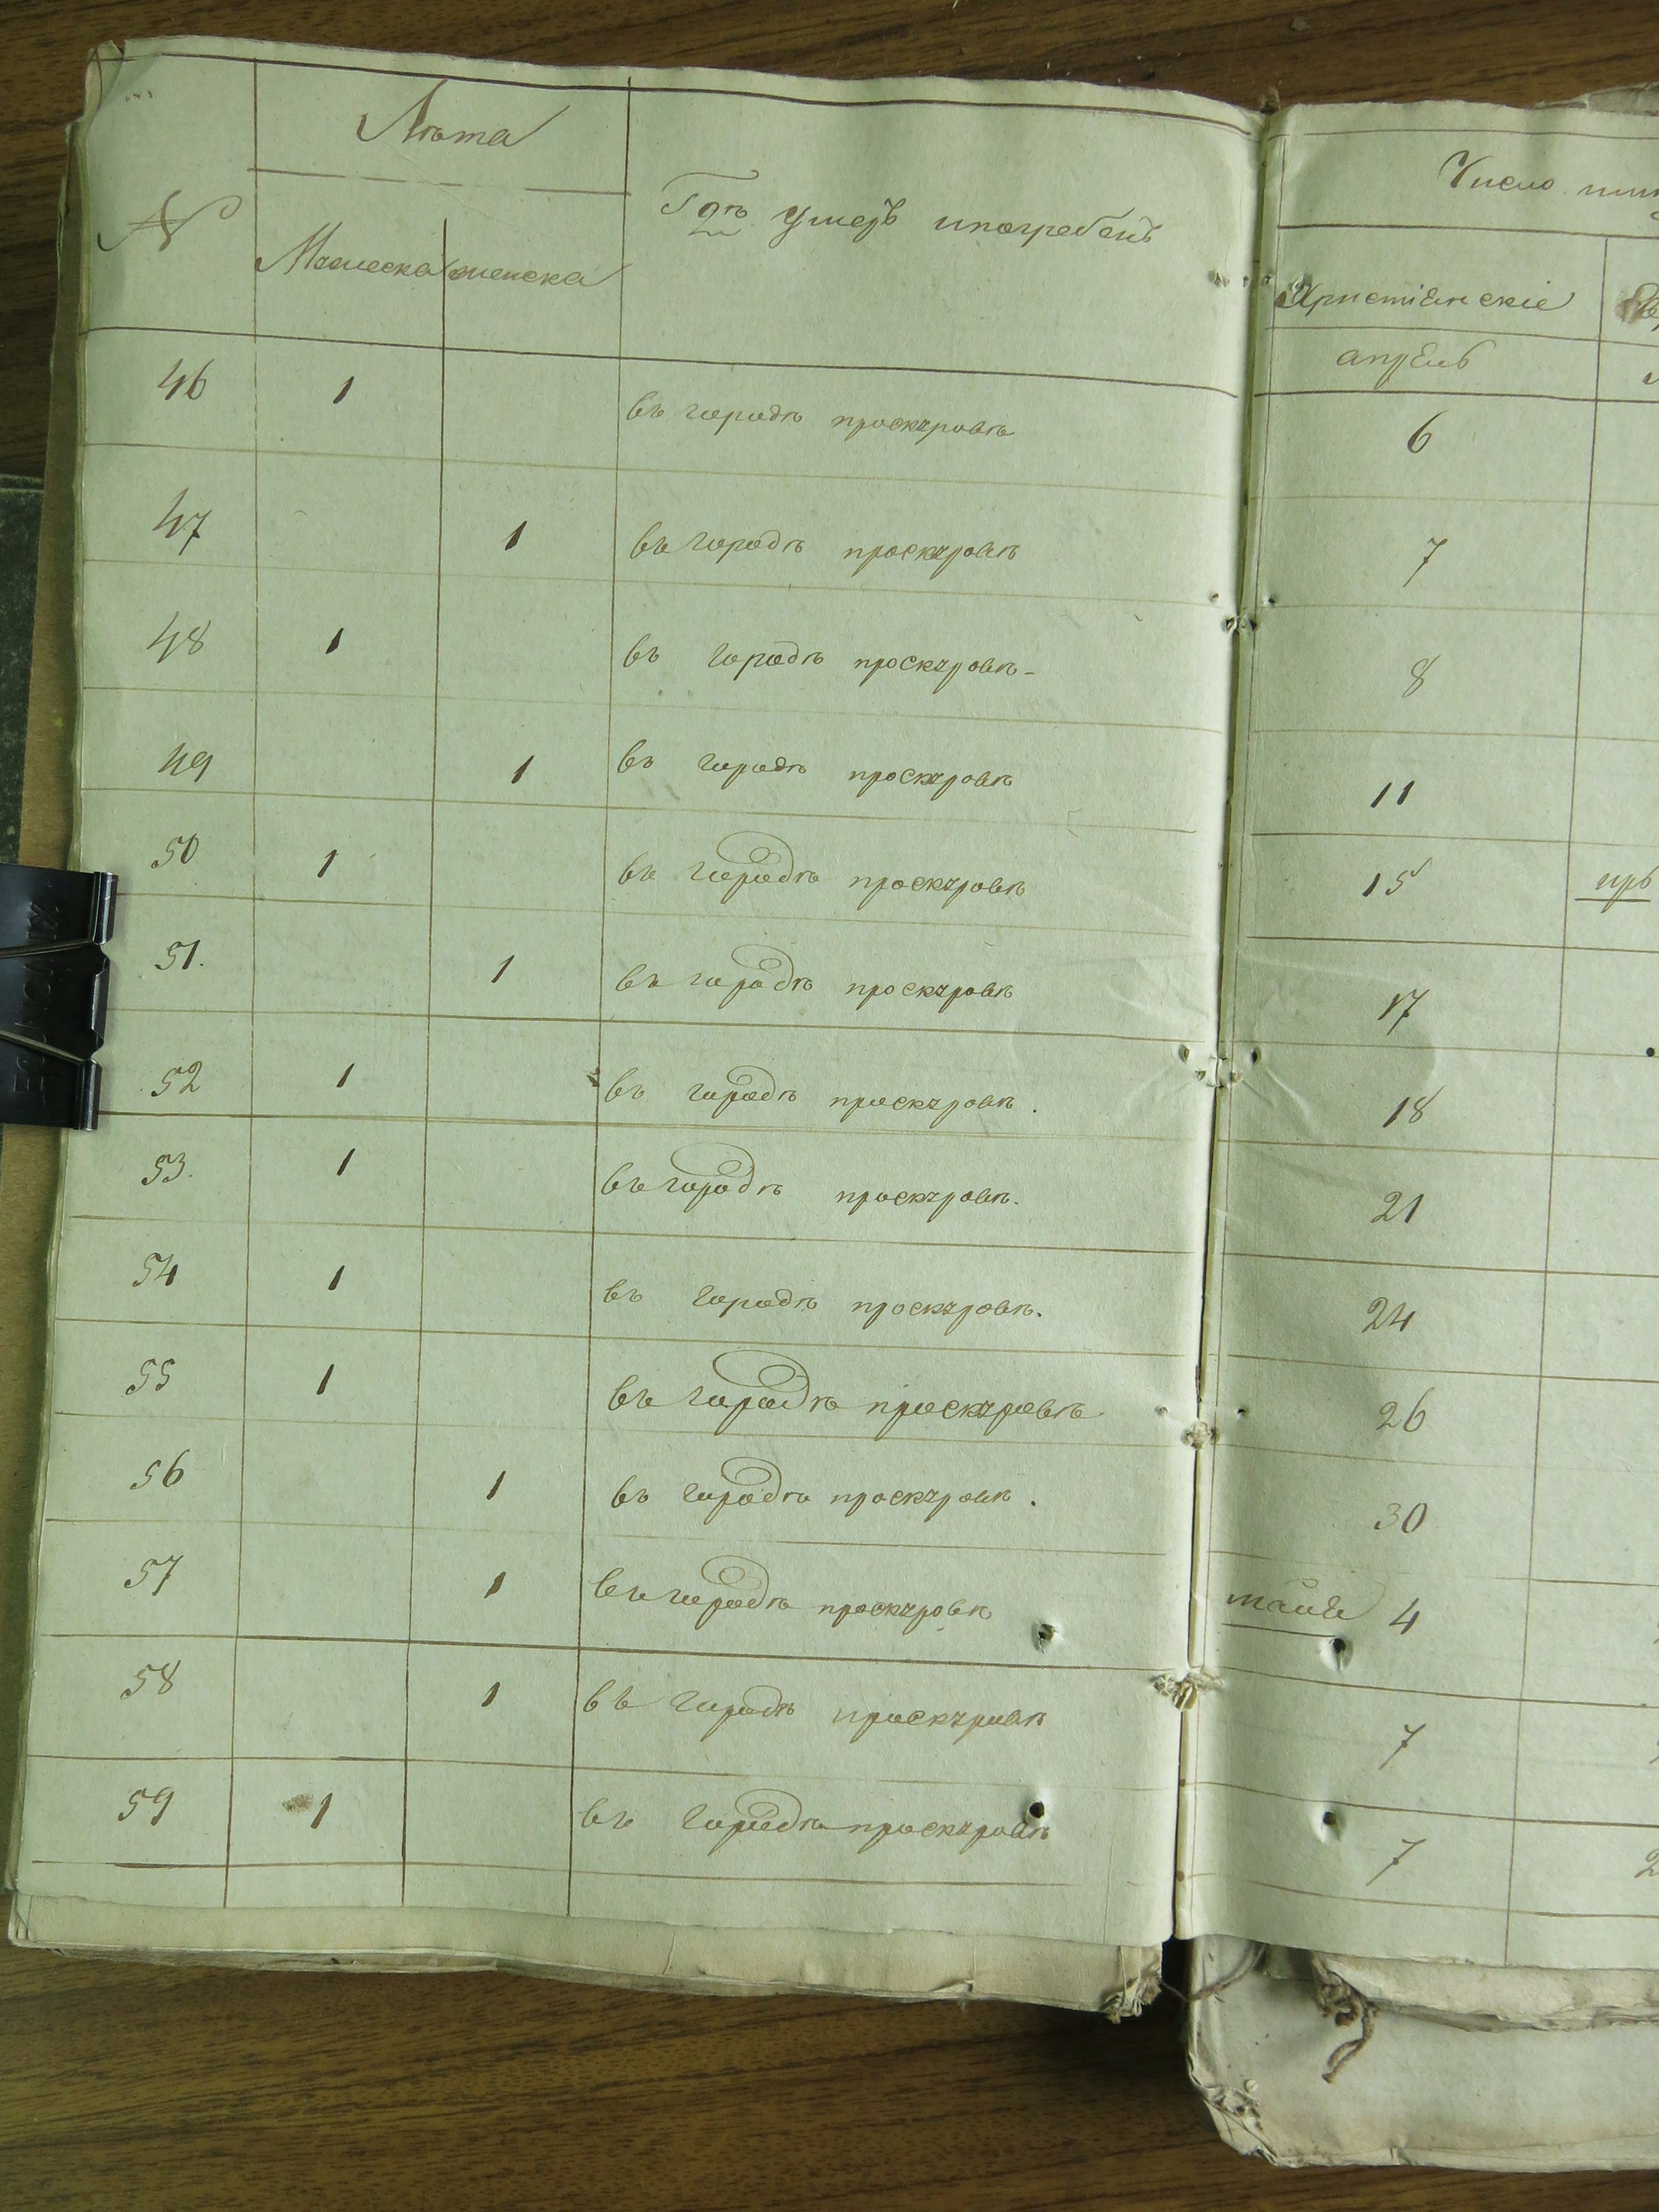 Лѣта
№ Мужеска женска Гдѣ умеръ ипогребенъ
Число
Христіанскіе
апрель
46 1 въ городѣ проскуровѣ 6
47 1 въ городѣ проскуровѣ 7
48 1 въ городѣ проскуровѣ- 8
49 1 въ городѣ проскуровѣ 11
50 1 въ городѣ проскуровѣ 15
51. 1 въ городѣ проскуровѣ 17
52 1 въ городѣ проскуровѣ. 18
53. 1 въ городѣ проскуровѣ. 21
54 1 въ городѣ проскуровѣ. 24
55 1 въ городѣ проскуровѣ 26
56 1 въ городѣ проскуровѣ. 30
57 1 въ городѣ проскуровѣ 4
58 1 въ городѣ проскуровѣ 7
59 1 въ городѣ проскуровѣ 7 2